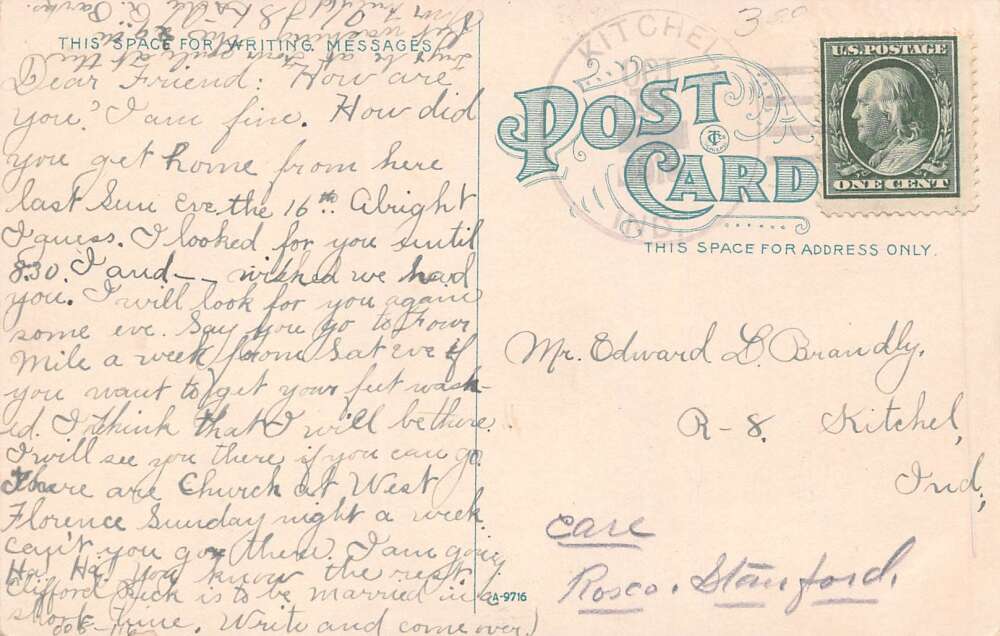 THIS SPACE FOR WRITING MESSAGES
Dear Friend: How are
you? I am fine. How did
you get home from here
last Sun Eve the 16th Alright
I guess. I looked for you until
8.30. I and - - wished we had
you. I will look for you again
some eve. Say you go to Four
Mile a week from Sat Eve if
you want to get your feet wash-
ed. I think that I will be there
I will see you there if you can go.
There are Church at West
Florence Sunday night a week.
can't you go there. I am going
Ha! Ha! you know the rest
Clifford is to be married in a
short time. Write and come over)
Parks.
KITCHEL
OCT
IND.
350
U.S. POSTAGE
ONE CENT
POST
CARD
THIS SPACE FOR ADDRESS ONLY.
Mr. Edward L. Brandly,
R-8. Kitchel,
Ind,
care
Rosco. Stanford.
A-9716